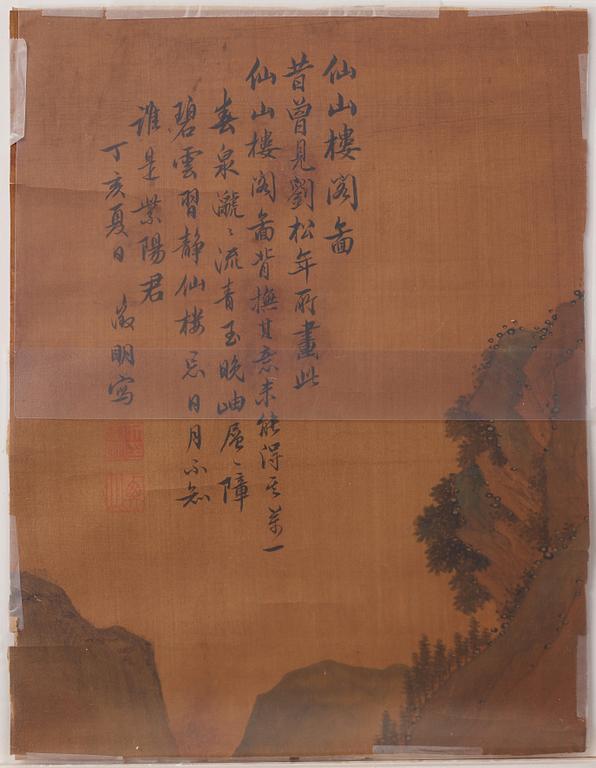 仙山樓阁啚
昔曽見劉松年所畫此
仙山樓阁啚背撫其意未能得其萬一
春泉㶁〻流青玉晚岫層〻障
碧雲習静仙楼忘日月不知
誰是紫陽君
丁亥夏日 徵明寫